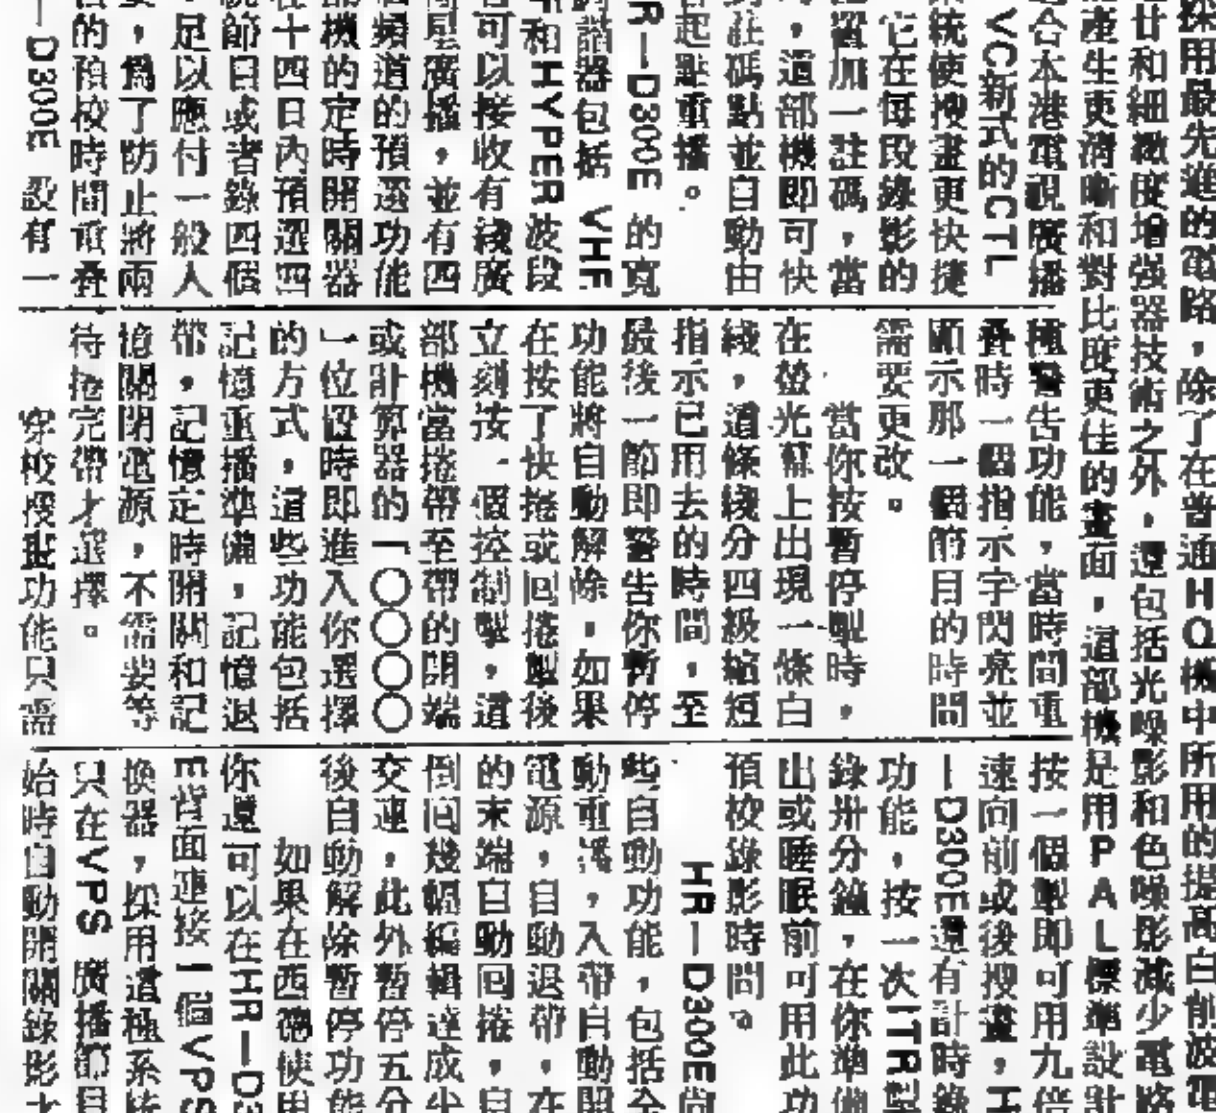 採用最先進的電路，除了在普通HQ機中所用的提高白削波電
廿和細緻度增强器技術之外，還包括光噪影和色噪影減少電路
產生更清晰和對比度更佳的畫面，這部機是用PAL標準設計
合本港電視廣播
VC新式的CTL
統使搜畫更快捷
它在每段錄影的
置加一註碼，當
，這部機即可快
註碼點並自動由
起點重播。
R—D300E 的寬
諧器包括 VHF
和HYPER波段
可以接收有綫廣
星廣播，並有四
頻道的預選功能
機的定時開關器
十四日內預選四
節目或者錄四個
足以應付一般人
，爲了防止將兩
的預校時間重叠
—D300E 設有一
種警告功能，當時間重
叠時一個指示字閃亮並
顯示那一個節目的時間
需要更改。
當你按暫停掣時，
在螢光幕上出現一條白
綫，這條綫分四級縮短
指示已用去的時間，至
最後一節即警告你暫停
功能將自動解除，如果
在按了快捲或回捲掣後
立刻按一個控制掣，這
部機當捲帶至帶的開端
或計算器的「〇〇〇〇
」位置時即進入你選擇
的方式，這些功能包括
記憶重播準備，記憶退
帶，記憶定時開關和記
憶關閉電源，不需要等
待捲完帶才選擇。
穿梭搜畫功能只需
按一個掣即可用九倍
速向前或後搜畫，H
—D300E還有計時錄
功能，按一次ITR掣
錄卅分鐘，在你準備
出或睡眠前可用此功
預校錄影時間。
HR—D300E尚
些自動功能，包括全
動重播，入帶自動開
電源，自動退帶，在
的末端自動回捲，自
倒回幾幅編輯達成少
交連，此外暫停五分
後自動解除暫停功能
如果在西德使用
你還可以在HR—D3
E背面連接一個VPS
換器，採用這種系統
只在VPS 廣播節目
始時自動開關錄影才